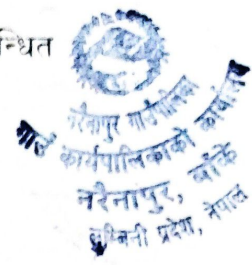 न्धित
नरैनापुर गाउँपालिका
गाउँ कार्यपालिकाको कार्यालय
नरैनापुर, बाँके
लुम्बिनी प्रदेश, नेपाल